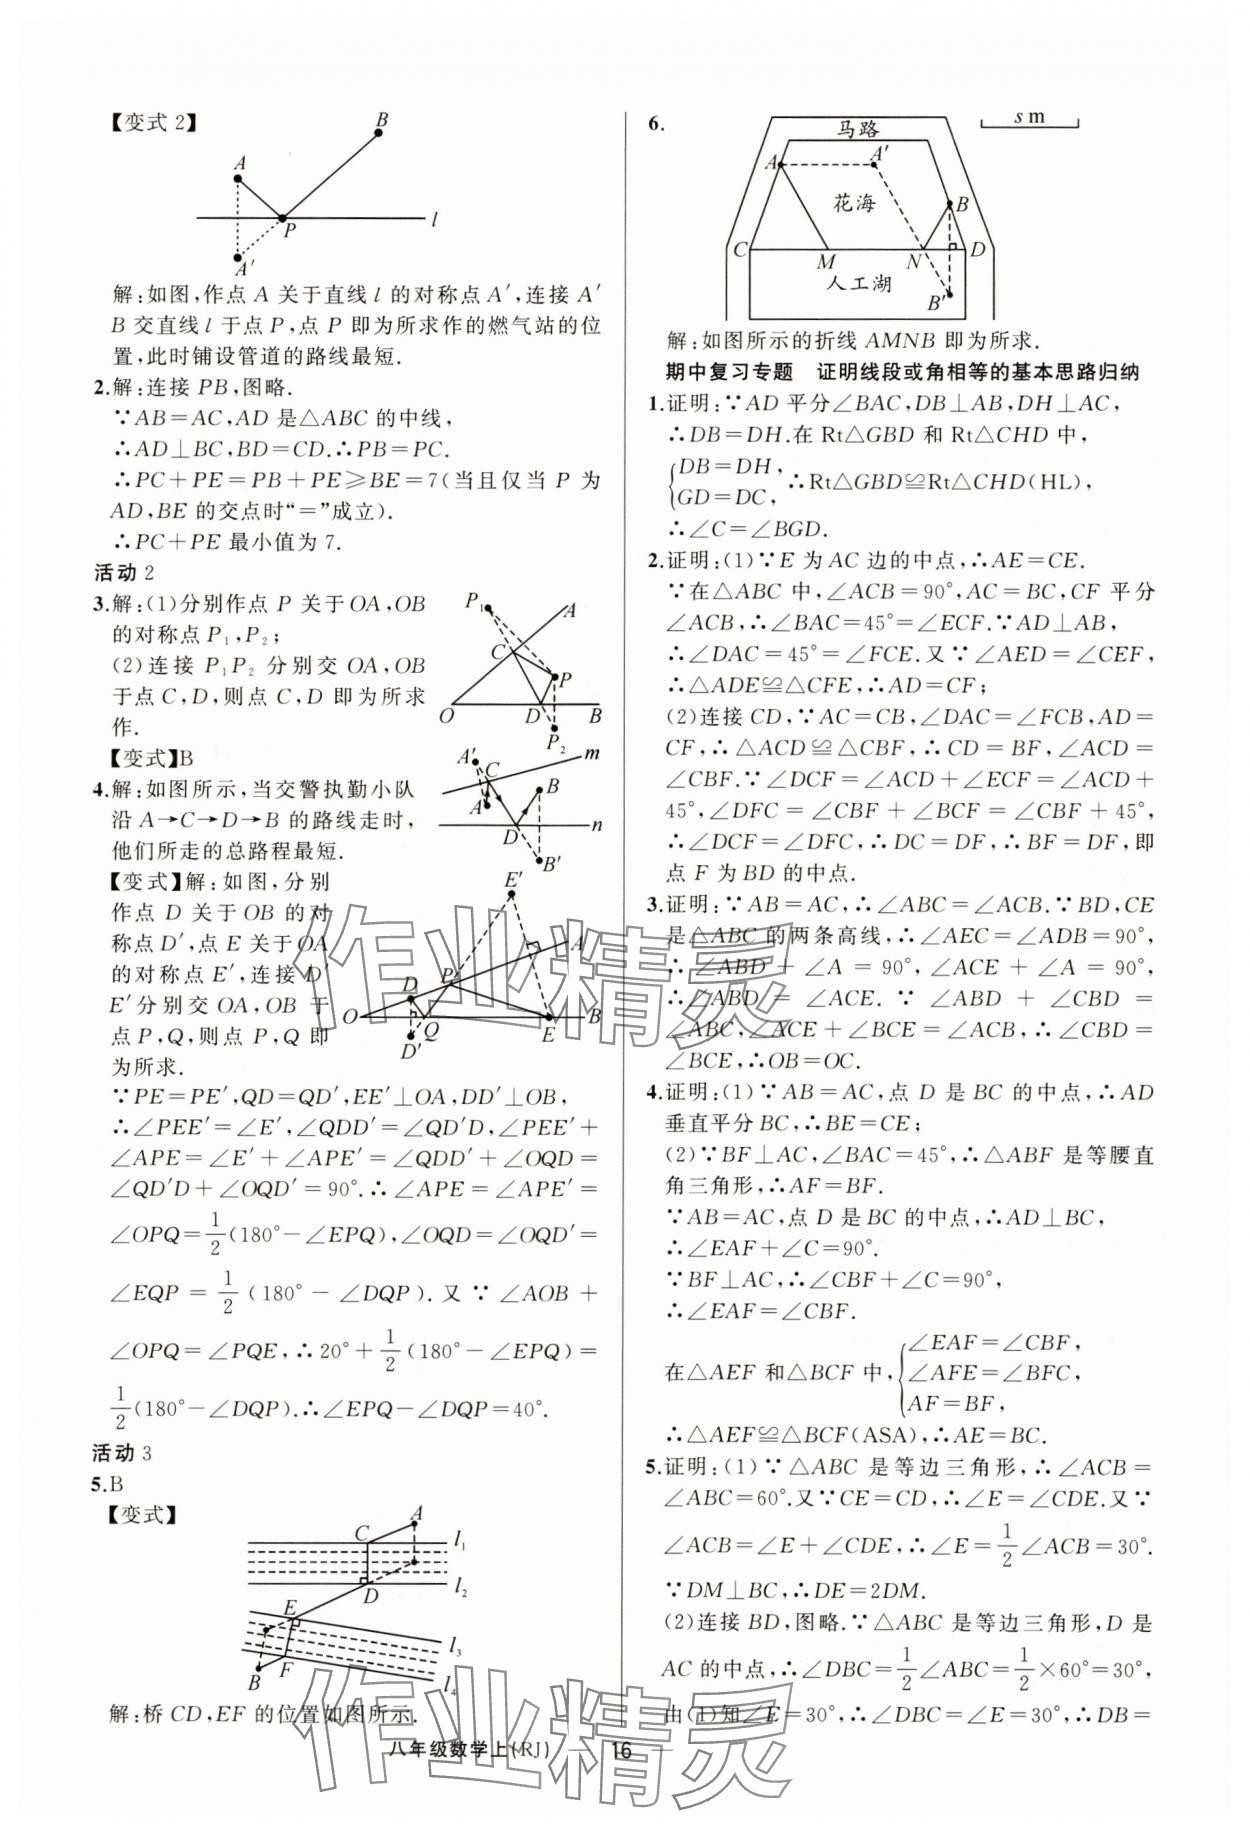 【变式 2】
A
B
P
l
A′
解:如图,作点 A 关于直线 l 的对称点 A′,连接 A′
B 交直线 l 于点 P,点 P 即为所求作的燃气站的位
置,此时铺设管道的路线最短.
2.解:连接 PB,图略.
∵AB=AC,AD 是△ABC 的中线,
∴AD⊥BC,BD=CD.∴PB=PC.
∴PC+PE=PB+PE≥BE=7(当且仅当 P 为
AD,BE 的交点时“=”成立).
∴PC+PE 最小值为 7.
活动 2
3.解:(1)分别作点 P 关于OA,OB
的对称点 P₁,P₂;
(2)连接 P₁P₂ 分别交 OA,OB
于点 C,D,则点 C,D 即为所求
作.
P₁
A
C
P
O
D
B
P₂
【变式】B
4.解:如图所示,当交警执勤小队
沿 A→C→D→B 的路线走时,
他们所走的总路程最短.
A′
C
m
A
B
D
n
B′
【变式】解:如图,分别
作点 D 关于OB 的对
称点D′,点 E 关于OA
的对称点 E′,连接 D′
E′分别交 OA,OB 于
点 P,Q,则点 P,Q 即
为所求.
E′
A
P
D
O
Q
E
B
D′
∵PE=PE′,QD=QD′,EE′⊥OA,DD′⊥OB,
∴∠PEE′=∠E′,∠QDD′=∠QD′D,∠PEE′+
∠APE=∠E′+∠APE′=∠QDD′+∠OQD=
∠QD′D+∠OQD′=90°.∴∠APE=∠APE′=
∠OPQ=1/2(180°-∠EPQ),∠OQD=∠OQD′=
∠EQP=1/2(180°-∠DQP).又∵∠AOB+
∠OPQ=∠PQE,∴20°+1/2(180°-∠EPQ)=
1/2(180°-∠DQP).∴∠EPQ-∠DQP=40°.
活动 3
5.B
【变式】
A
C
l₁
D
l₂
E
l₃
B
F
l₄
解:桥 CD,EF 的位置如图所示.
6.
s m
马路
A
A′
花海
B
C
M
N
D
人工湖
B′
解:如图所示的折线 AMNB 即为所求.
期中复习专题 证明线段或角相等的基本思路归纳
1.证明:∵AD 平分∠BAC,DB⊥AB,DH⊥AC,
∴DB=DH.在 Rt△GBD 和 Rt△CHD 中,
{DB=DH,
GD=DC, ∴Rt△GBD≌Rt△CHD(HL),
∴∠C=∠BGD.
2.证明:(1)∵E 为 AC 边的中点,∴AE=CE.
∵在△ABC 中,∠ACB=90°,AC=BC,CF 平分
∠ACB,∴∠BAC=45°=∠ECF.∵AD⊥AB,
∴∠DAC=45°=∠FCE.又∵∠AED=∠CEF,
∴△ADE≌△CFE,∴AD=CF;
(2)连接 CD,∵AC=CB,∠DAC=∠FCB,AD=
CF,∴△ACD≌△CBF,∴CD=BF,∠ACD=
∠CBF.∵∠DCF=∠ACD+∠ECF=∠ACD+
45°,∠DFC=∠CBF+∠BCF=∠CBF+45°,
∴∠DCF=∠DFC,∴DC=DF,∴BF=DF,即
点 F 为BD 的中点.
3.证明:∵AB=AC,∴∠ABC=∠ACB.∵BD,CE
是△ABC 的两条高线,∴∠AEC=∠ADB=90°,
∴∠ABD+∠A=90°,∠ACE+∠A=90°,
∴∠ABD=∠ACE.∵∠ABD+∠CBD=
∠ABC,∠ACE+∠BCE=∠ACB,∴∠CBD=
∠BCE,∴OB=OC.
4.证明:(1)∵AB=AC,点 D 是 BC 的中点,∴AD
垂直平分BC,∴BE=CE;
(2)∵BF⊥AC,∠BAC=45°,∴△ABF 是等腰直
角三角形,∴AF=BF.
∵AB=AC,点 D 是BC 的中点,∴AD⊥BC,
∴∠EAF+∠C=90°.
∵BF⊥AC,∴∠CBF+∠C=90°,
∴∠EAF=∠CBF.
在△AEF 和△BCF 中,{∠EAF=∠CBF,
∠AFE=∠BFC,
AF=BF,
∴△AEF≌△BCF(ASA),∴AE=BC.
5.证明:(1)∵△ABC 是等边三角形,∴∠ACB=
∠ABC=60°.又∵CE=CD,∴∠E=∠CDE.又∵
∠ACB=∠E+∠CDE,∴∠E=1/2∠ACB=30°.
∵DM⊥BC,∴DE=2DM.
(2)连接 BD,图略.∵△ABC 是等边三角形,D 是
AC 的中点,∴∠DBC=1/2∠ABC=1/2×60°=30°,
由(1)知∠E=30°,∴∠DBC=∠E=30°,∴DB=
八年级数学上(RJ) — 16 —
作业精灵
作业精灵